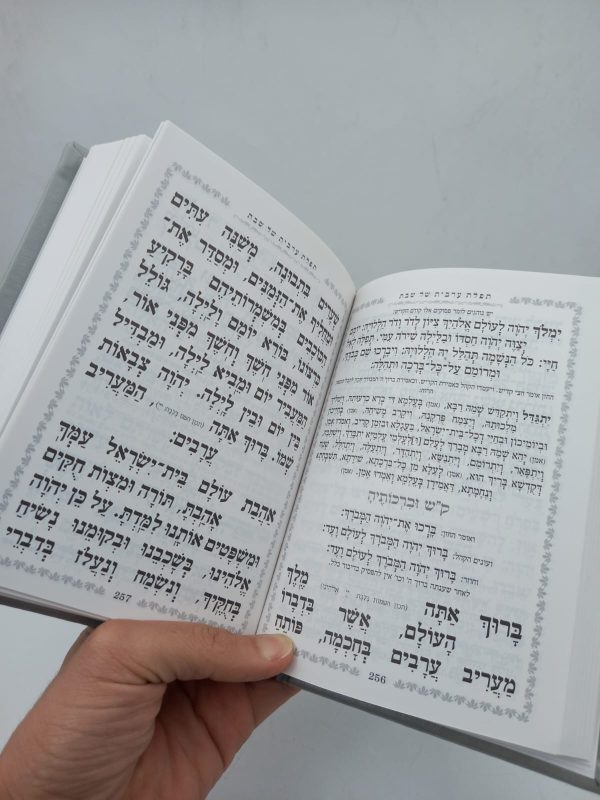 תפלת ערבית של שבת
יש נוהגים לומר פסוקים אלו קודם הקדיש:
יִמְלֹךְ יְהֹוָה לְעוֹלָם אֱלֹהַיִךְ צִיּוֹן לְדֹר וָדֹר הַלְלוּיָהּ:
יְצַוֶּה יְהֹוָה חַסְדּוֹ וּבַלַּיְלָה שִׁירֹה עִמִּי. תְּפִלָּה לְאֵל
חַיָּי: כֹּל הַנְּשָׁמָה תְּהַלֵּל יָהּ הַלְלוּיָהּ: וִיבָרְכוּ שֵׁם כְּבֹדֶךָ
וּמְרוֹמַם עַל־כָּל־בְּרָכָה וּתְהִלָּה:
חזון אומר חצי קדיש.
יִתְגַּדַּל וְיִתְקַדַּשׁ שְׁמֵהּ רַבָּא, (אמן) בְּעָלְמָא דִּי בְרָא כִרְעוּתֵהּ,
מַלְכוּתֵהּ, וְיַצְמַח פֻּרְקָנֵהּ, וִיקָרֵב מְשִׁיחֵהּ. (אמן)
וּבְיוֹמֵיכוֹן וּבְחַיֵּי דְכָל־בֵּית־יִשְׂרָאֵל, בַּעֲגָלָא וּבִזְמַן קָרִיב,
(אמן) יְהֵא שְׁמֵהּ רַבָּא מְבָרַךְ לְעָלַם וּלְעָלְמֵי עָלְמַיָּא יִתְבָּרַךְ,
וְיִתְפָּאַר, וְיִתְרוֹמַם, וְיִתְנַשֵּׂא,
דְּקֻדְשָׁא בְּרִיךְ הוּא, (אמן) לְעֵלָּא מִן כָּל־בִּרְכָתָא,
וְנֶחֱמָתָא, דַּאֲמִירָן בְּעָלְמָא וְאִמְרוּ אָמֵן. (אמן)
ק"ש וברכותיה
ואומר החזן: בָּרְכוּ אֶת־יְהֹוָה הַמְבֹרָךְ:
ועונים הקהל: בָּרוּךְ יְהֹוָה הַמְבֹרָךְ לְעוֹלָם וָעֶד:
וחוזר: בָּרוּךְ יְהֹוָה הַמְבֹרָךְ לְעוֹלָם וָעֶד:
לאחר שענתה ברוך ה' וכו' אין להפסיק בדיבור כלל.
בָּרוּךְ אַתָּה מֶלֶךְ
הָעוֹלָם, אֲשֶׁר בִּדְבָרוֹ
מַעֲרִיב עֲרָבִים בְּחָכְמָה, פּוֹתֵחַ
256
תפלת ערבית של שבת
שְׁעָרִים בִּתְבוּנָה, מְשַׁנֶּה עִתִּים
וּמַחֲלִיף אֶת־הַזְּמַנִּים, וּמְסַדֵּר אֶת־
הַכּוֹכָבִים בְּמִשְׁמְרוֹתֵיהֶם בָּרָקִיעַ
כִּרְצוֹנוֹ, בּוֹרֵא יוֹמָם וָלַיְלָה, גּוֹלֵל
אוֹר מִפְּנֵי חֹשֶׁךְ וְחֹשֶׁךְ מִפְּנֵי אוֹר,
הַמַּעֲבִיר יוֹם וּמֵבִיא לַיְלָה, וּמַבְדִּיל
בֵּין יוֹם וּבֵין לַיְלָה. יְהֹוָה צְבָאוֹת
שְׁמוֹ. בָּרוּךְ אַתָּה, הַמַּעֲרִיב
עֲרָבִים:
אַהֲבַת עוֹלָם בֵּית־יִשְׂרָאֵל עַמְּךָ
אָהַבְתָּ, תּוֹרָה וּמִצְוֹת חֻקִּים
וּמִשְׁפָּטִים אוֹתָנוּ לִמַּדְתָּ. עַל כֵּן יְהֹוָה
אֱלֹהֵינוּ, בְּשָׁכְבֵנוּ וּבְקוּמֵנוּ נָשִׂיחַ
בְּחֻקֶּיךָ, וְנִשְׂמַח וְנַעֲלֹז בְּדִבְרֵי
257